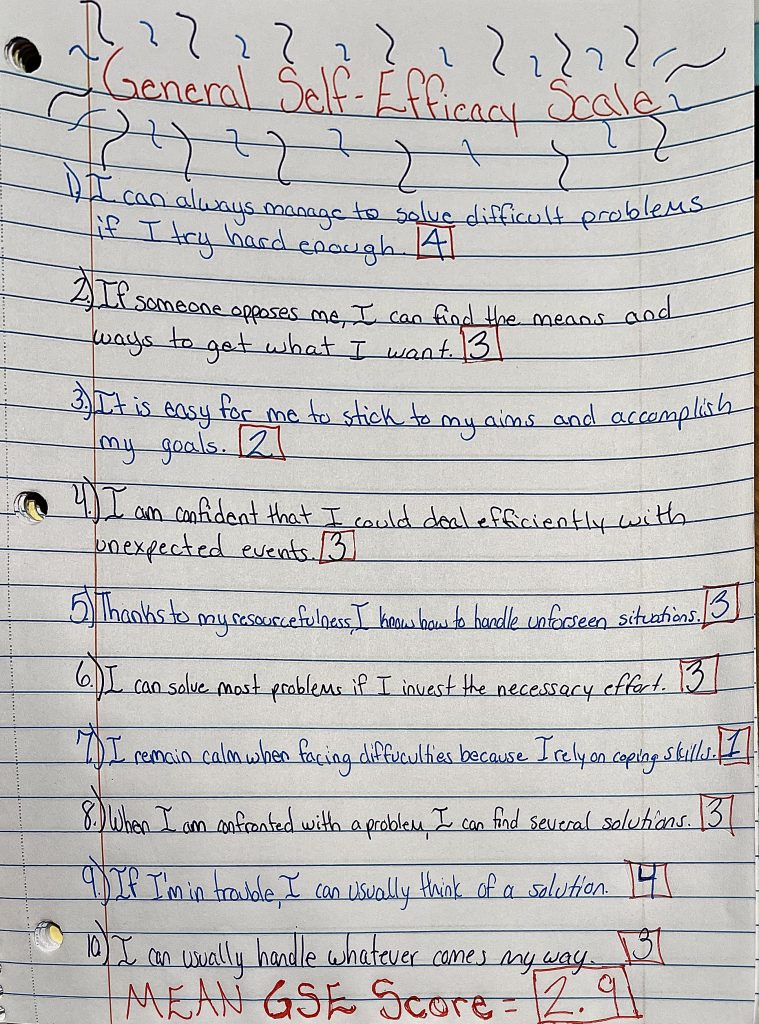 General Self-Efficacy Scale
1.) I can always manage to solve difficult problems
if I try hard enough. 4
2.) If someone opposes me, I can find the means and
ways to get what I want. 3
3.) It is easy for me to stick to my aims and accomplish
my goals. 2
4.) I am confident that I could deal efficiently with
unexpected events. 3
5.) Thanks to my resourcefulness, I know how to handle unforseen situations. 3
6.) I can solve most problems if I invest the necessary effort. 3
7.) I remain calm when facing diffuculties because I rely on coping skills. 1
8.) When I am confronted with a problem, I can find several solutions. 3
9.) If I'm in trouble, I can usually think of a solution. 4
10.) I can usually handle whatever comes my way. 3
MEAN GSE Score = 2.9